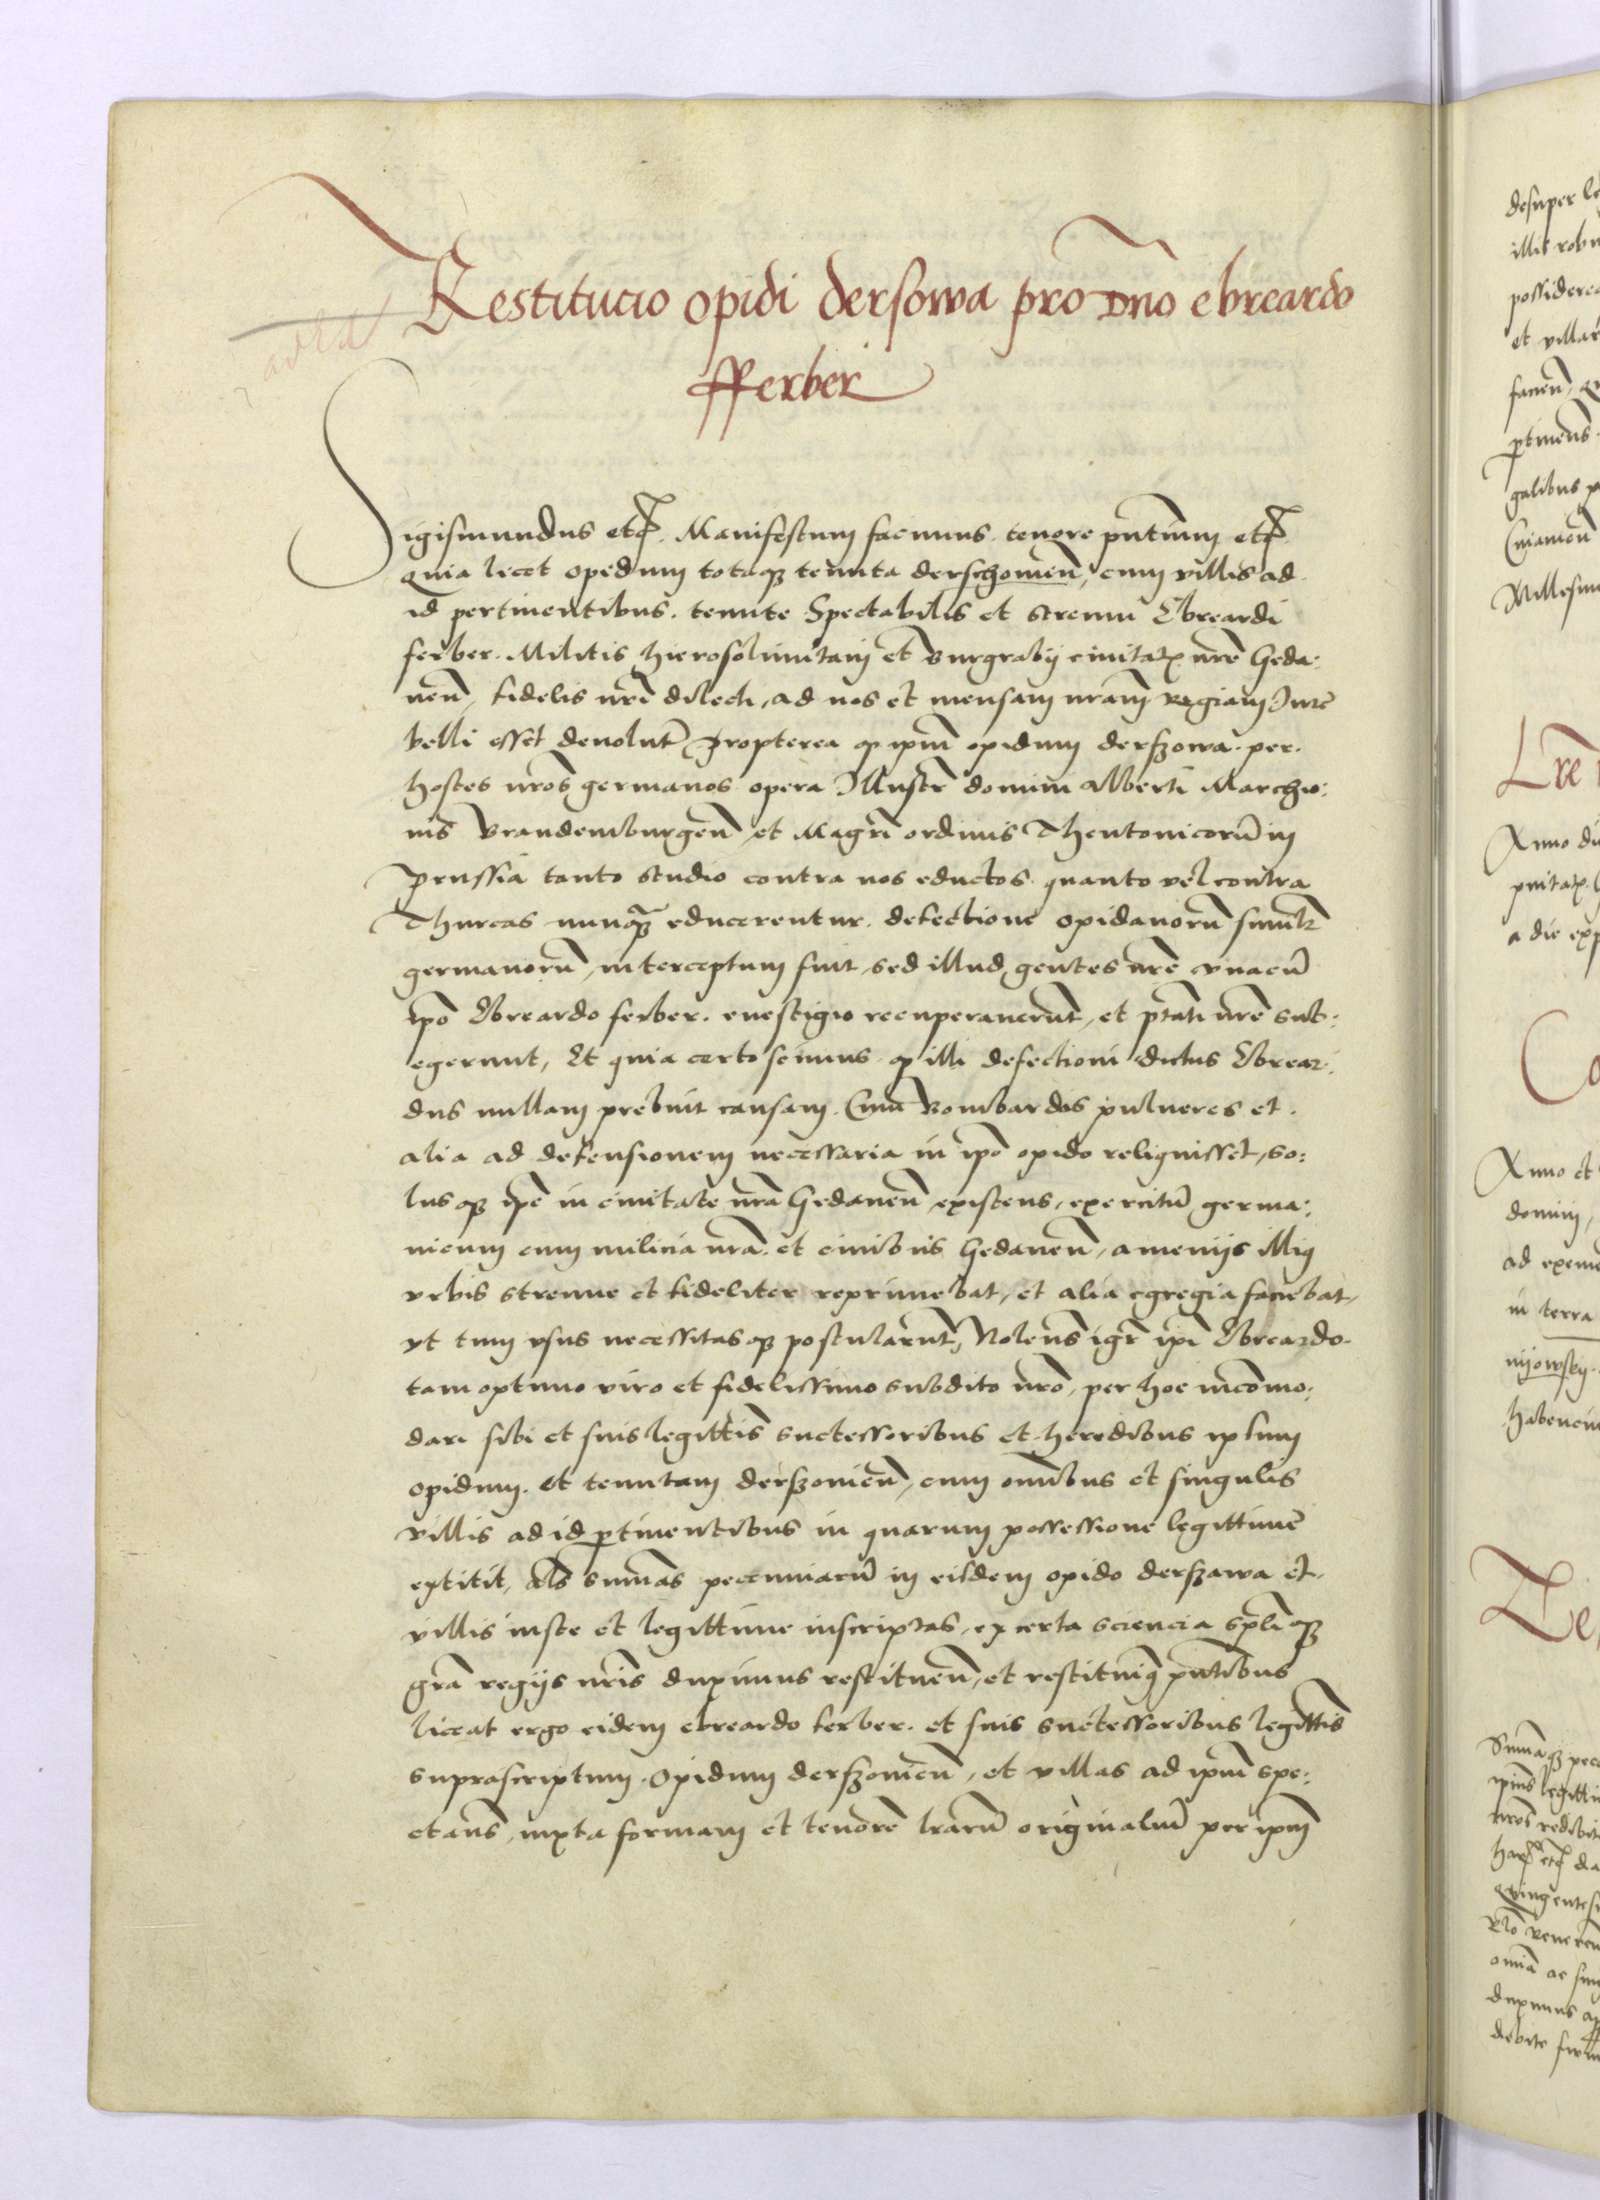 Restitucio opidi dersowa pro dno ebreardo
fferber
Sigismundus etc. Manifestum facimus tenore pntium etc.
Quia licet opidum totaqz tenuta derschouien, cum villis ad
id pertinentibus. tenute Spectabilis et strenui Ebreardi
ferber. Militis hierosolimitani et Burgrabij ciuitatis nre Geda:
nen, fidelis nri dilecti, ad nos et mensam nram regiam Iure
belli esset deuolut Propterea q ipm opidum derszowa per
hostes nros germanos opera Illustr domini Alberti Marchio:
nis Brandemburgen et Magri ordinis Theutonicoru in
Prussia tanto studio contra nos eductos quanto vel contra
Thurcas nunqz educerentur. defectione opidanoru simulr
germanoru, interceptum fuit, sed illud gentes nre vnacu
ipo Ebreardo ferber. euestigio recuperauerunt, et ptati nre sub:
egerunt, Et quia certo scimus q illi defectioni dictus Ebrear:
dus nullam prebuit causam. Cum Bombardas pulueres et
alia ad defensionem necessaria in ipo opido reliquisset, so:
lus qz ipe in ciuitate nra Gedanen existens, exercitu germa:
nicum cum milicia nra et ciuibus Gedanen, a menijs illius
vrbis strenue et fideliter reprimebat, et alia egregia faciebat,
vt tum vsus necessitas qz postularunt, Nolens igr ipi Ebreardo
tam optimo viro et fidelissimo subdito nro, per hoc incomo:
dari sibi et suis legittis successoribus et heredibus ipsum
opidum et tenutam derszouien, cum omibus et singulis
villis ad id ptinentibus in quarum possessione legittime
extitit, Als sumas pecuniaru in eisdem opido derszawa et
villis iuste et legittime inscriptas, ex certa sciencia spliqz
gra regijs nris duximus restituen, et restituimq pntibus
liceat ergo eidem ebreardo ferber. et suis successoribus legittis
suprascriptum Opidum derszouien, et villas ad ipm spe:
ctans, iuxta formam et tenore lraru originaliu per ipm